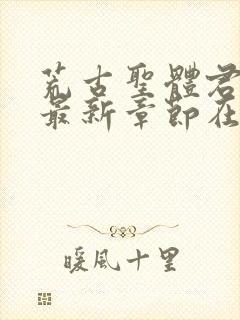 荒古聖體君
最新章節在
暖風十里